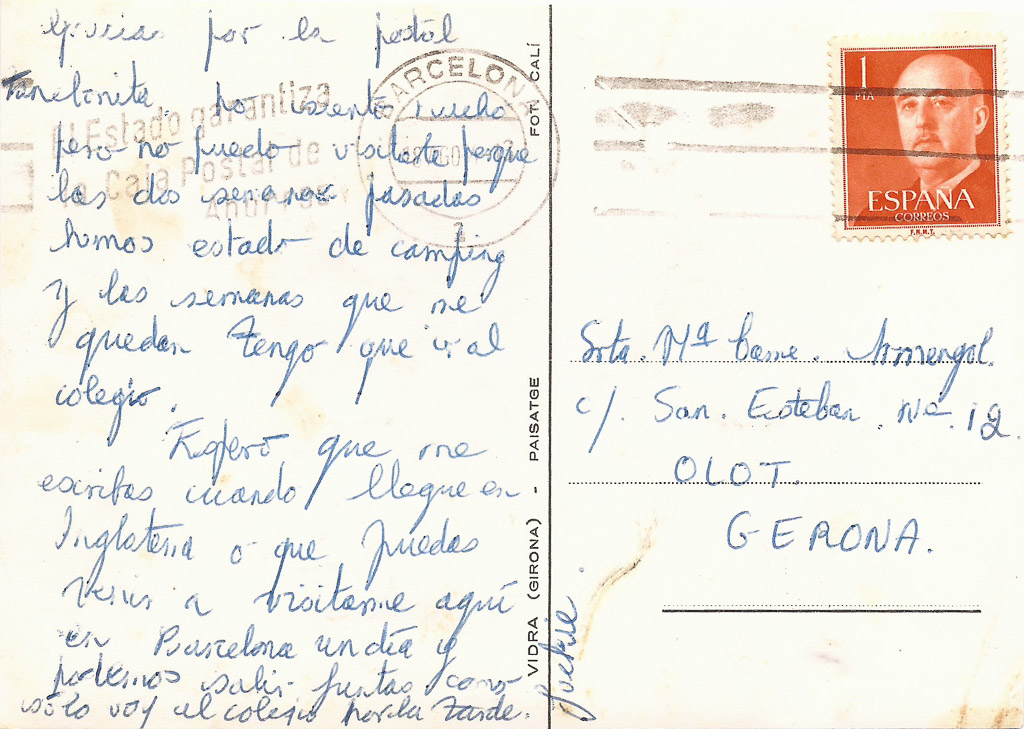 Gracias por la postal
lo siento mucho
pero no puedo visitarte porque
las dos semanas pasadas
hemos estado de camping
y las semanas que me
quedan tengo que ir al
colegio.
Espero que me
escribas cuando llegue en
Inglaterra o que puedas
venir a visitarme aquí
en Barcelona un día y
podemos salir juntas como
sólo voy al colegio por la tarde.
Jackie.
El Estado garantiza
la Caja Postal de
Ahorros
BARCELONA
FOT. CALÍ
VIDRA (GIRONA) - PAISATGE
1
PTA
ESPAÑA
CORREOS
F.N.M.T.
Srta. Mª Carme. Armengol.
c/. San. Esteban. nº. 12.
OLOT.
GERONA.